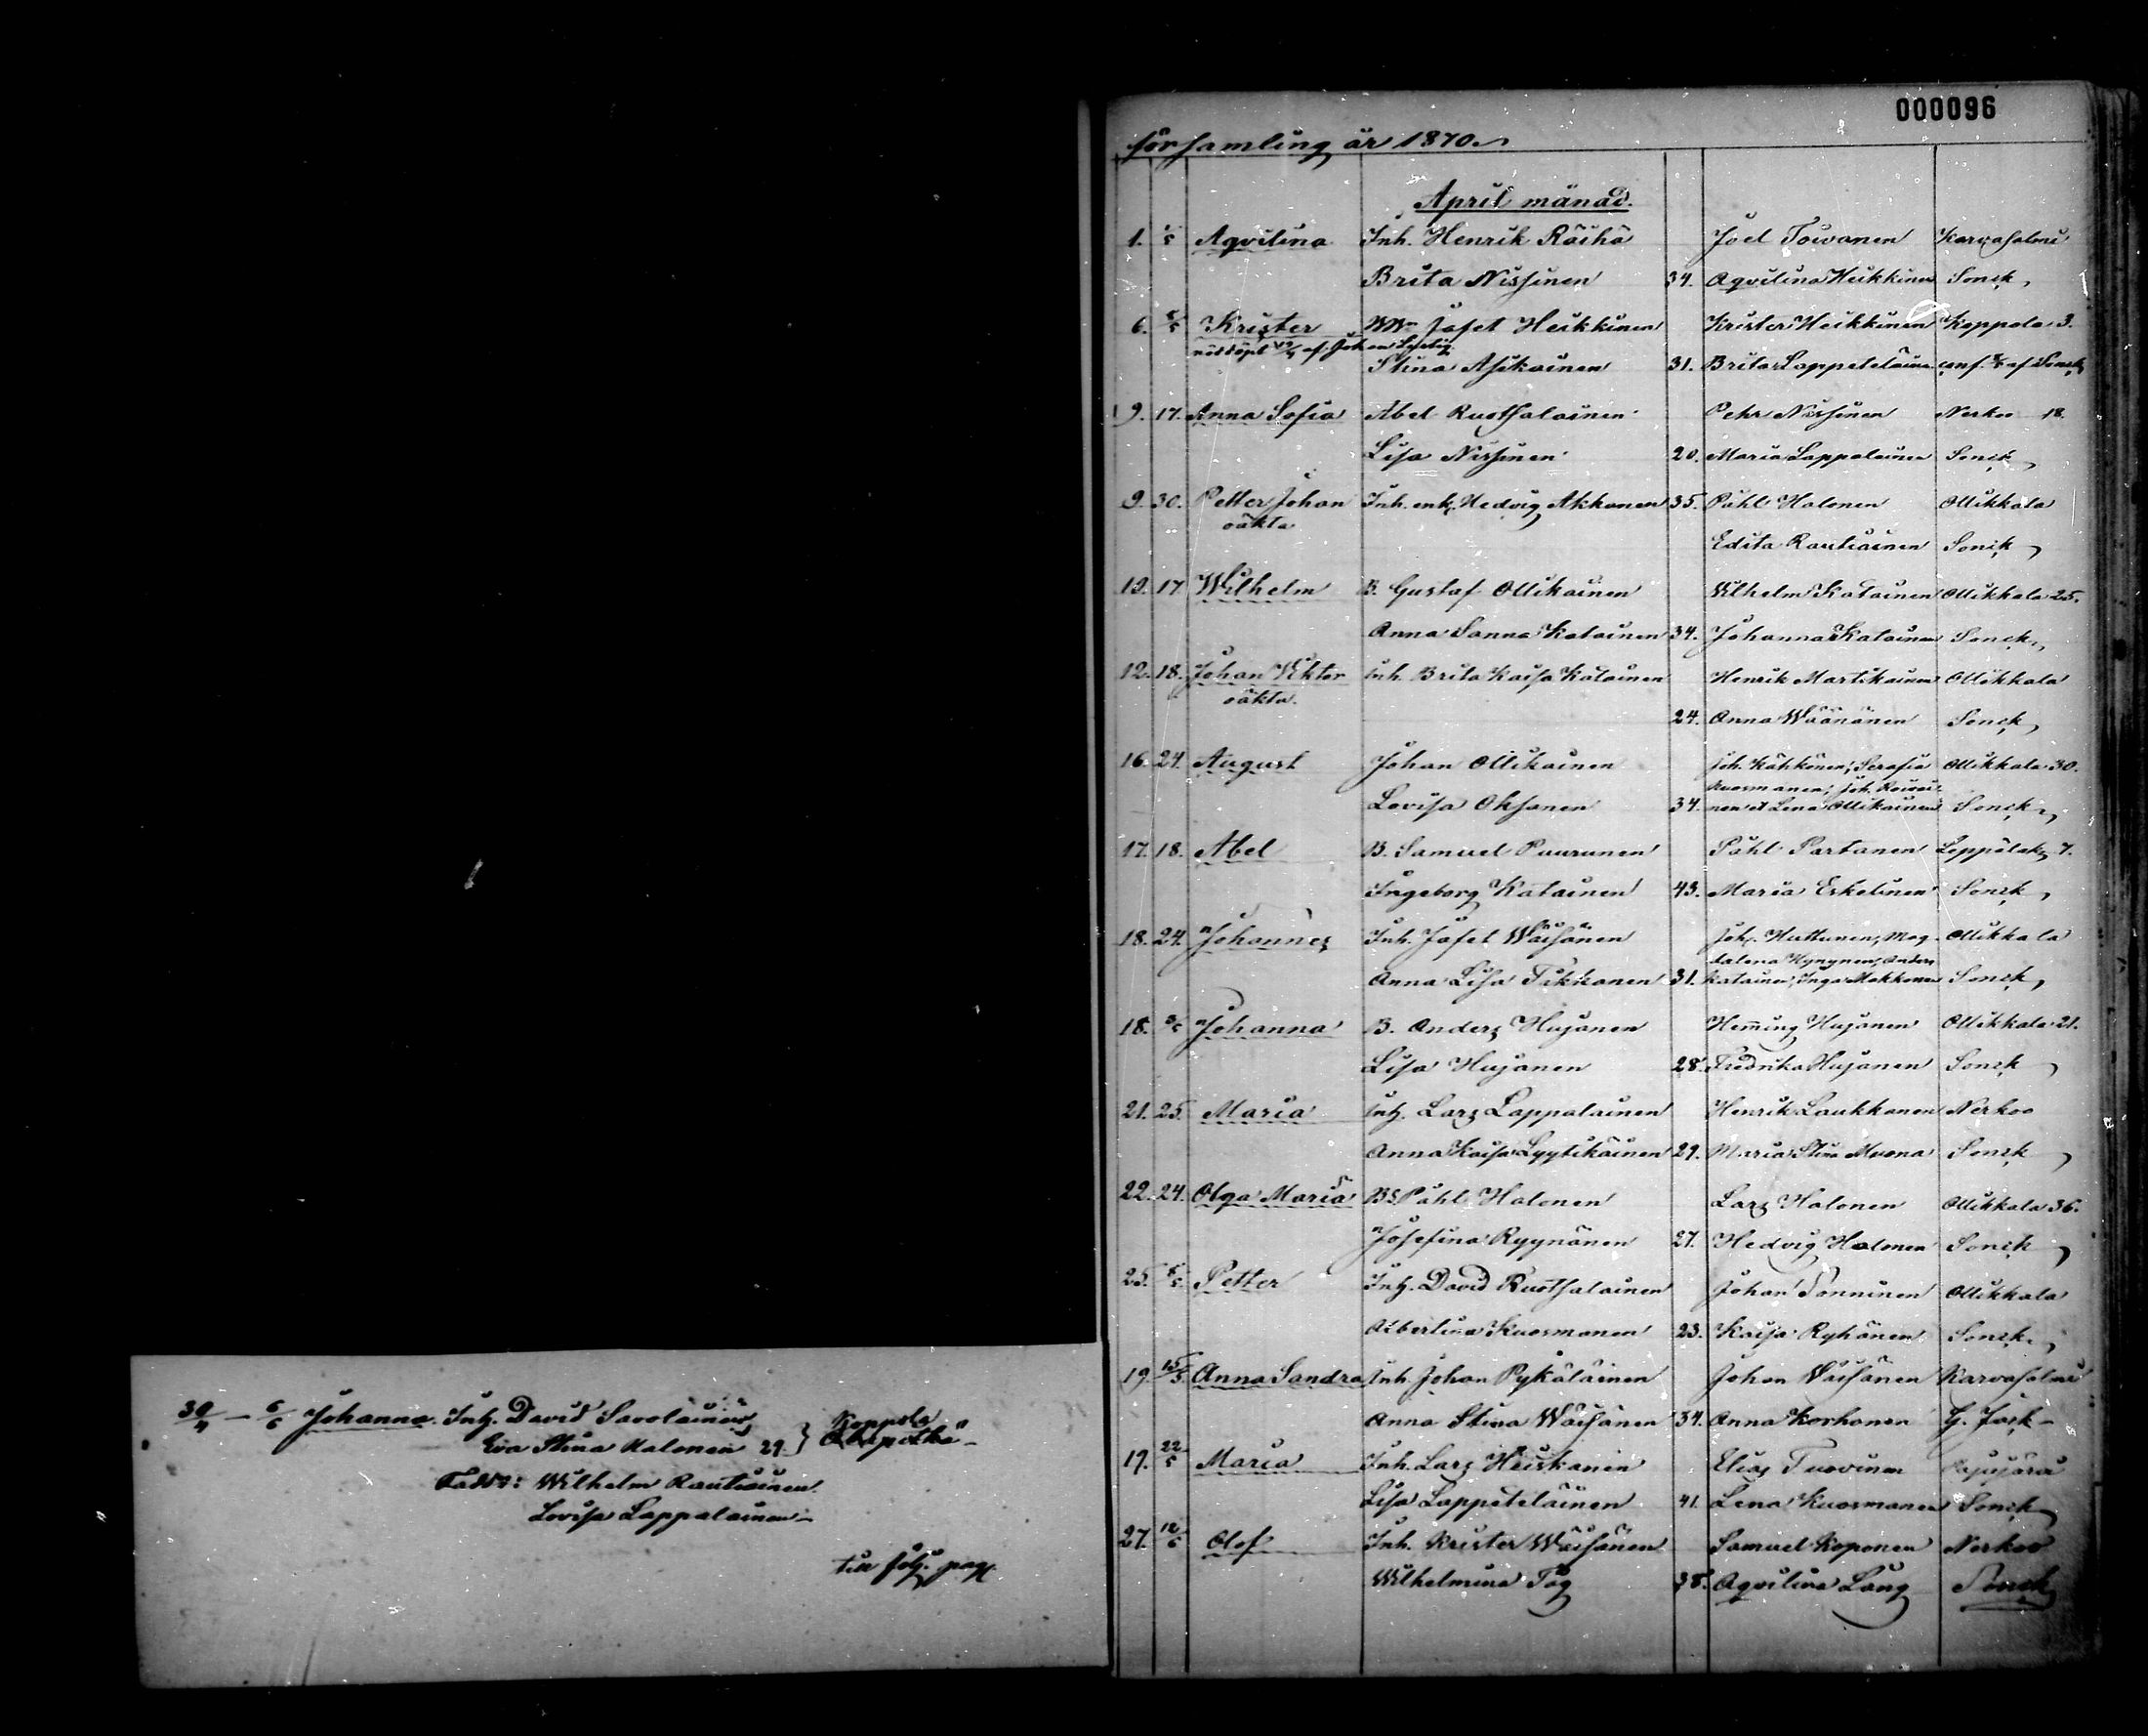 000096
församling år 1870.
April månad.
1. 1/5 Aqvilina Inh. Henrik Räihä Joel Toivanen Karvasalmi
Brita Nissinen 34. Aqvilina Heikkinen Sonck,
6. 8/5 Krister Josef Heikkinen Krister Heikkinen Koppola 3.
nöddöpt af Joh
Stina Asikainen 31. Brita Lappeteläinen conf. af Sonck,
9. 17. Anna Sofia Abel Ruotsalainen Pehr Nissinen Nerkoo 18.
Lisa Nissinen 20. Maria Lappalainen Sonck,
9. 30. Petter Johan Inh. enk. Hedvig Akkanen 35. Påhl Halonen Ollikkala
oäkta Edita Rautiainen Sonck,
12. 17 Wilhelm B. Gustaf Ollikainen Wilhelm Katainen Ollikkala 25.
Anna Sanna Katainen 34. Johanna Katainen Sonck,
12. 18. Johan Viktor Inh. Brita Kaisa Katainen Henrik Martikainen Ollikkala
oäkta. 24. Anna Wäänänen Sonck,
16. 24. August Johan Ollikainen Joh. Kähkönen, Serafia Ollikkala 30.
Kuosmanen, Joh. Roivai-
Lovisa Oksanen 34. nen et Lena Ollikainen Sonck,
17. 18. Abel B. Samuel Puurunen Påhl Partanen Leppälaks 7.
Ingeborg Katainen 43. Maria Eskelinen Sonck,
18. 24. Johannes Inh. Josef Wäisänen Joh. Huttunen, Mag- Ollikkala
dalena Hynynen, Anders
Anna Lisa Tikkanen 31. Katainen, Inga Makkonen Sonck,
18. 3/5 Johanna B. Anders Hujanen Heming Hujanen Ollikkala 21.
Lisa Hujanen 28. Fredrika Hujanen Sonck
21. 25. Maria Inh. Lars Lappalainen Henrik Laukkanen Nerkoo
Anna Kaisa Lyytikäinen 29. Maria Stina Muona Sonck,
22. 24. Olga Maria BS. Påhl Halonen Lars Halonen Ollikkala 36.
Josefina Ryynänen 27. Hedvig Halonen Sonck,
25. 8/5 Petter Inh. David Ruotsalainen Johan Tanninen Ollikkala
Albertina Kuosmanen 23. Kaisa Ryhänen Sonck,
19. 15/5 Anna Sandra Inh. Johan Pykäläinen Johan Wäisänen Karvasalmi
Anna Stina Wäisänen 34. Anna Korhonen
19. 22/5 Maria Inh. Lars Heiskanen Elias Tuovinen
Lisa Lappeteläinen 41. Lena Kuosmanen Sonck,
27. 12/6 Olof Inh. Krister Wäisänen Samuel Koponen Nerkoo
Wilhelmina Tåg 38. Aqvilina Lång Sonck
30/4 – 6/6 Johanna. Inh. David Savolainen } Koppola
Eva Stina Halonen 29.
Faddr: Wilhelm Rautiainen.
Lovisa Lappalainen –
till följ. pag.